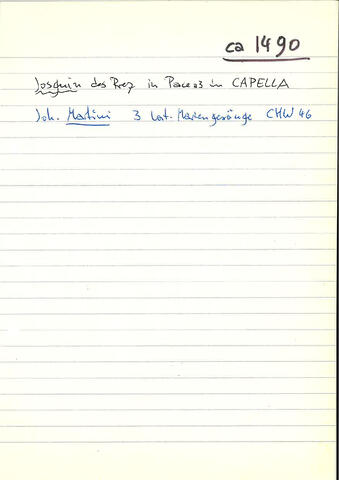 ca 1490
Josquin des Prez in Pace a3 in CAPELLA
Joh. Martini 3 lat. Mariengesänge CHW 46